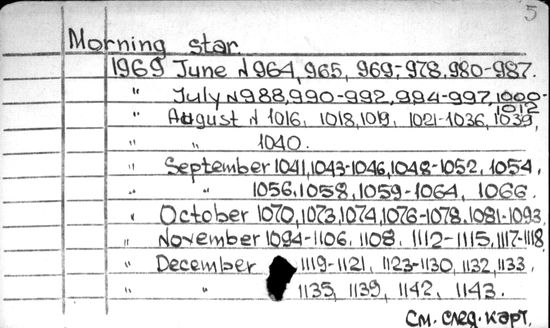 5
Morning star
1969 June N 964, 965, 969-978, 980-987.
" July N 988, 990-992, 994-997, 1000-1012
" August N 1016, 1018, 1019, 1021-1036, 1039,
" " 1040.
" September 1041, 1043-1046, 1048-1052, 1054,
" 1056, 1058, 1059-1064, 1066.
" October 1070, 1073, 1074, 1076-1078, 1081-1093,
" November 1094-1106, 1108, 1112-1115, 1117-1118
" December 1119-1121, 1123-1130, 1132, 1133,
" " 1135, 1139, 1142, 1143.
См. след. карт.